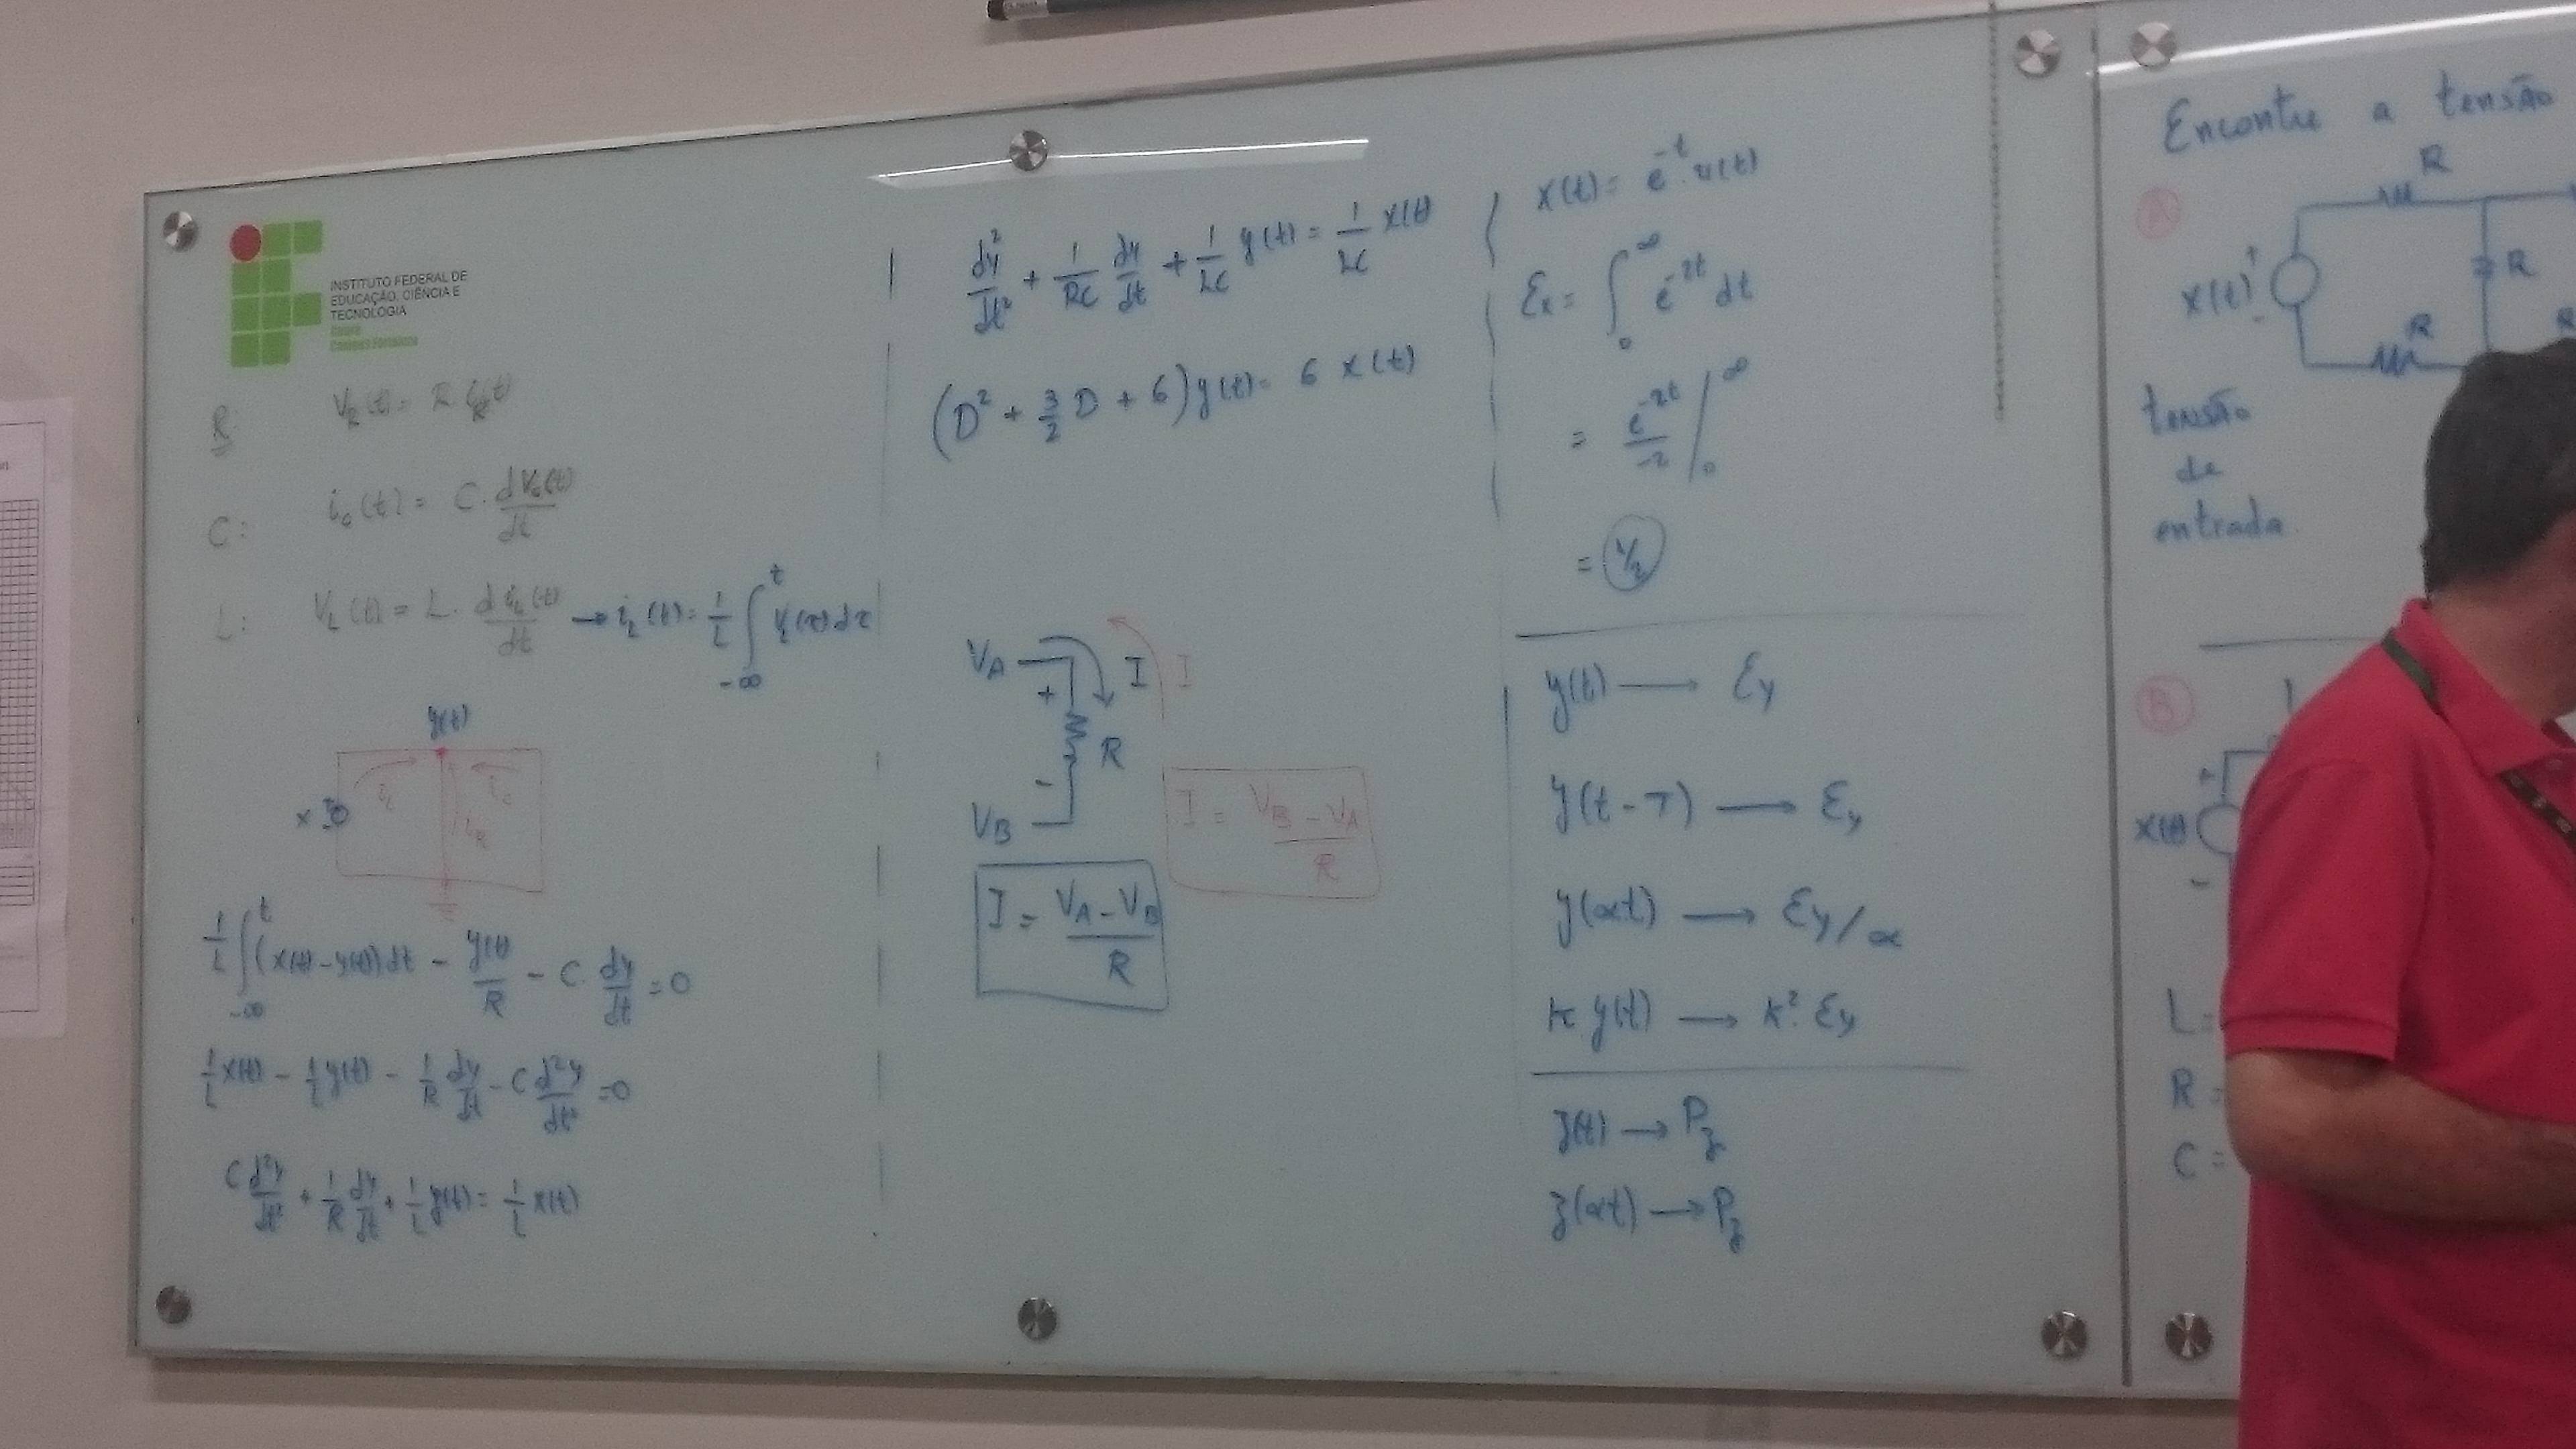 INSTITUTO FEDERAL DE
EDUCAÇÃO, CIÊNCIA E
TECNOLOGIA
Ceará
Campus Fortaleza
R:
V_R(t) = R i_R(t)
C: i_c(t) = C. dV_c(t)/dt
L: V_L(t) = L. di_L(t)/dt → i_L(t) = 1/L ∫_{-∞}^{t} V_L(τ)dτ
y(t)
i_L i_c
i_R
1/L ∫_{-∞}^{t} (x(t)-y(t))dt - y(t)/R - C. dy/dt = 0
1/L x(t) - 1/L y(t) - 1/R dy/dt - C d²y/dt² = 0
C d²y/dt² + 1/R dy/dt + 1/L y(t) = 1/L x(t)
d²y/dt² + 1/RC dy/dt + 1/LC y(t) = 1/LC x(t)
(D² + 3/2 D + 6) y(t) = 6 x(t)
V_A
+
I
I
R
-
V_B
I = (V_B - V_A)/R
I = (V_A - V_B)/R
x(t) = e^{-t}.u(t)
Ex = ∫_0^∞ e^{-2t} dt
= e^{-2t}/-2 |_0^∞
= 1/2
y(t) → Ey
y(t-T) → Ey
y(αt) → Ey/α
k.y(t) → k². Ey
z(t) → Pz
z(αt) → Pz
Encontre a tensão
A
R
x(t)
+
-
R
R
R
tensão
de
entrada
B
+
x(t)
-
L =
R =
C =